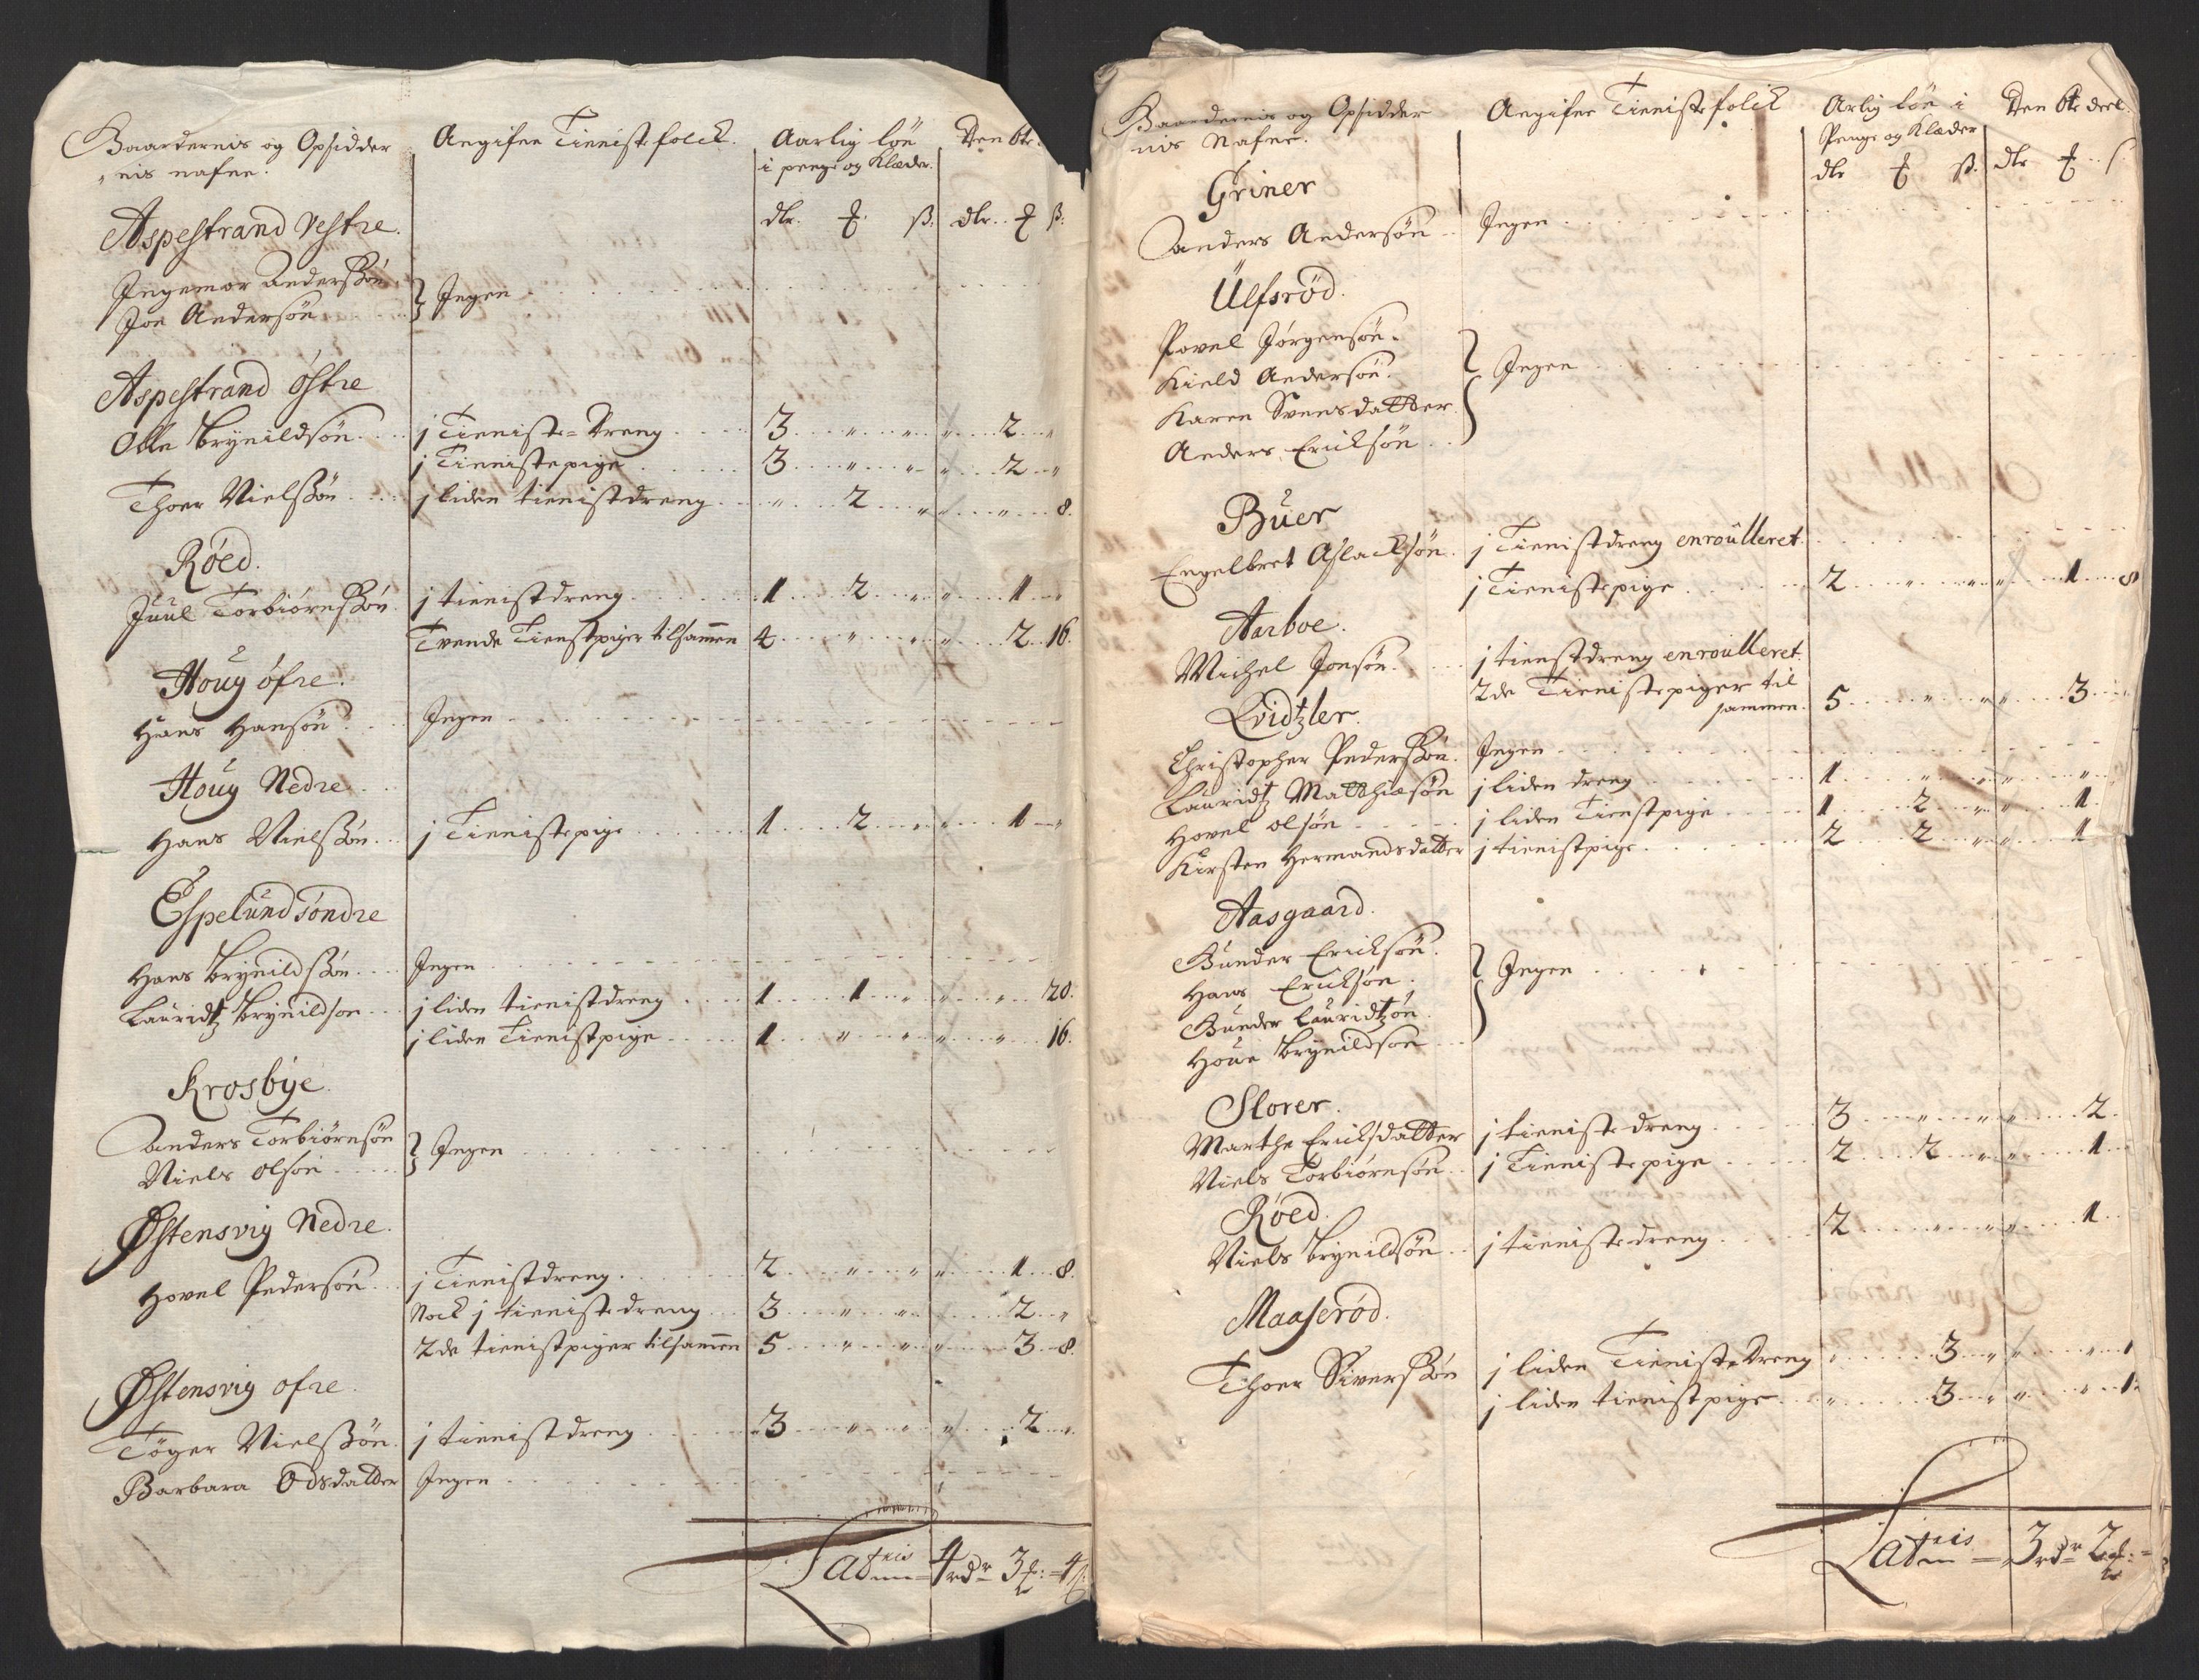 Gaardernis og Opsidder
nis nafne.
Angifne Tienistfolck.
Aarlig løn
i penge og Klæder.
Den 6te
dlr. ß. dlr. ß.
Aspestrand Vestre.
Ingemor Anderssøn
Jon Andersøn } Ingen
Aspestrand Østre
Olle Brynildsøn j Tieniste-Dreng 3 " " " 2 "
j Tienistepige 3 " " " 2 "
Thoer Nielssøn j liden tienistdreng " 2 " " " 8.
Røed.
Juul Torbiørnssøn j tienistdreng 1 2 " " 1 "
Tvende Tienstpiger tilsamen 4 " " " 2 16.
Houg øfre.
Hans Hansøn Ingen
Houg Nedre
Hans Nielssøn j Tienistepige 1 2 " " 1 "
Espelund Søndre
Hans Brynildssøn Ingen
Lauridtz Brynildsøn j liden tienistdreng 1 1 " " " 20.
j liden Tienistpige 1 " " " " 16.
Krosbye
Anders Torbiørnsøn
Niels Olsøn } Ingen
Østensvig Nedre.
Hovel Pedersøn j Tienistdreng 2 " " " 1 8.
Nock j tienistedreng 3 " " " 2 "
2de tienistpiger tilsamen 5 " " " 3 8.
Østensvig øfre
Tøger Nielssøn j tienistdreng 3 " " " 2 "
Barbara Odsdatter Ingen
Lateris 4 rdr 3 = 4
Gaardernis og Opsidder
nis Nafne.
Angifne Tienistefolck
Arlig løn i
Penge og Klæder
Den 6te deel.
dlr ß. dlr
Griner
Anders Andersøn Ingen
Ulfsrød.
Povel Jørgensøn.
Kield Andersøn.
Karen Svensdatter.
Anders Ericksøn } Ingen
Buer
Engelbret Aslachsøn j Tienistdreng enroulleret.
j Tienistepige 2 " " " 1 8
Aarboe.
Michel Jonsøn. j tienstdreng enroulleret.
2de Tienistepiger til
sammen. 5 " " " 3 "
Qvidtzler.
Christopher Pederssøn Ingen
Lauridtz Matthiæsøn j liden dreng 1 " " " "
Hovel Olsøn j liden Tienstpige 1 2 " " 1
Kirsten Hermandsdatter j tienistpige 2 2 " " 1
Aasgaard.
Gunder Ericksøn.
Hans Ericksøn.
Gunder Lauridtzøn
Houe Brynildsøn } Ingen
Slorer.
Marthe Ericksdatter j tieniste dreng 3 " " " 2.
Niels Torbiørnsøn j Tienistepige 2 2 " " 1
Røed.
Niels Brynildsøn j tienistedreng 2 " " " 1
Maaserød.
Thoer Siverssøn j liden Tieniste Dreng " 3 " " " 1
j liden tienistpige " 3 " " " 1
Lateris = 3 rdr 2